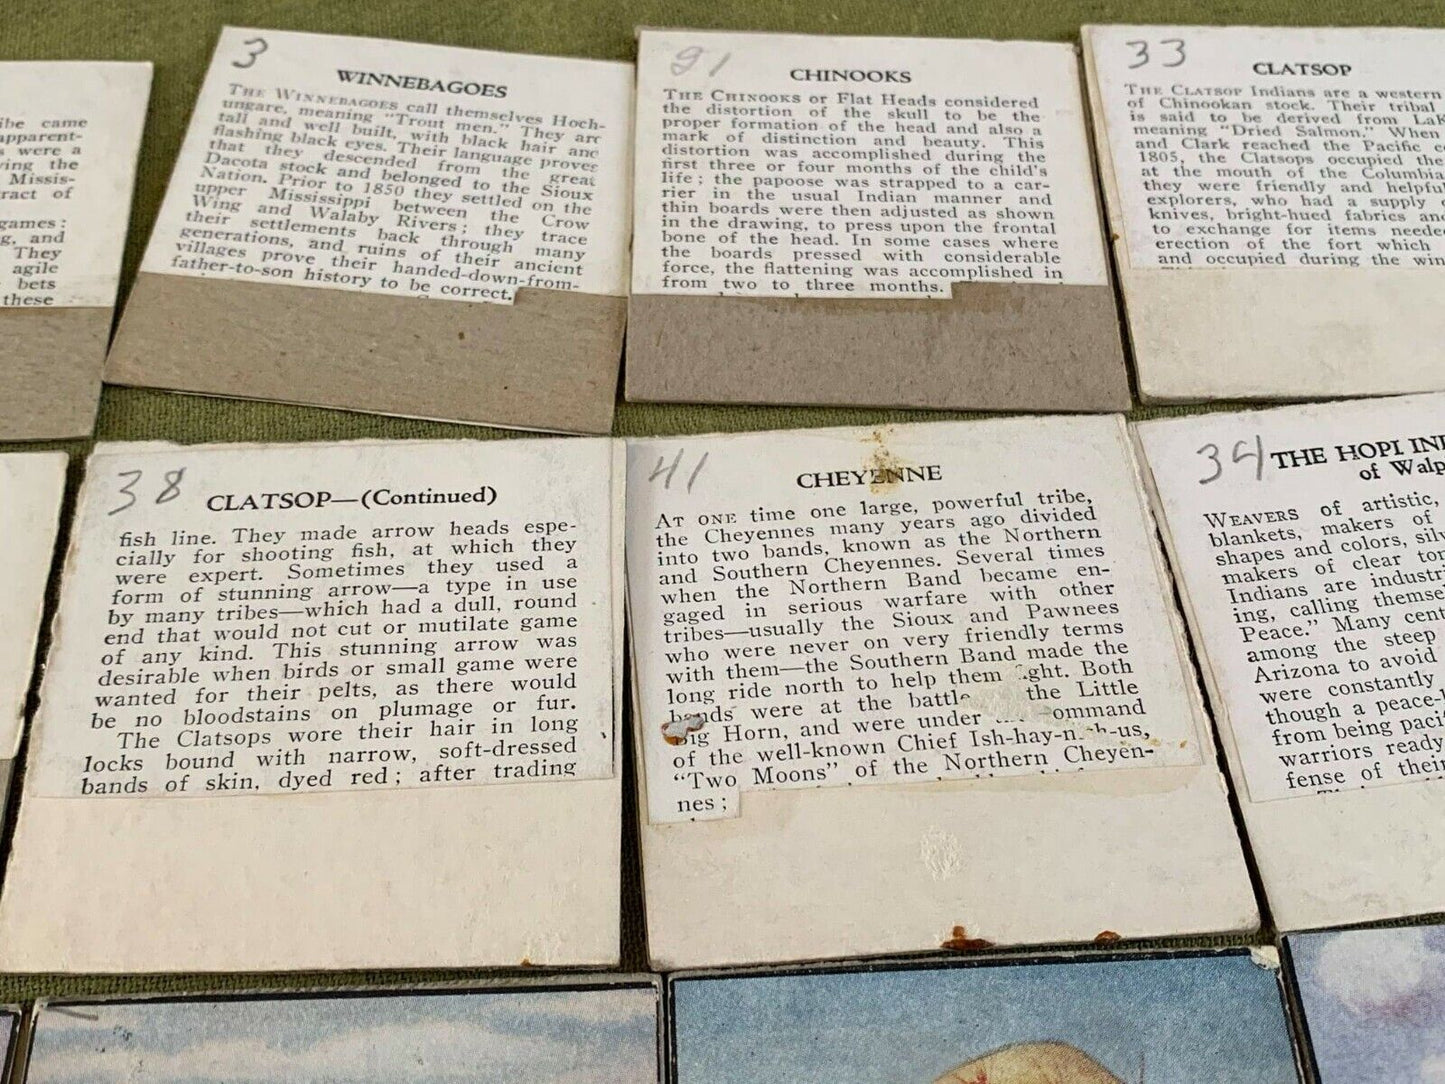 ibe came
apparent-
s were a
ving the
Missis-
ract of
games:
g, and
They
agile
bets
these
3
WINNEBAGOES
THE WINNEBAGOES call themselves Hoch-
ungare, meaning "Trout men." They are
tall and well built, with black hair and
flashing black eyes. Their language proves
that they descended from the great
Dacota stock and belonged to the Sioux
Nation. Prior to 1850 they settled on the
upper Mississippi between the Crow
Wing and Walaby Rivers; they trace
their settlements back through many
generations, and ruins of their ancient
villages prove their handed-down-from-
father-to-son history to be correct.
91
CHINOOKS
THE CHINOOKS or Flat Heads considered
the distortion of the skull to be the
proper formation of the head and also a
mark of distinction and beauty. This
distortion was accomplished during the
first three or four months of the child's
life; the papoose was strapped to a car-
rier in the usual Indian manner and
thin boards were then adjusted as shown
in the drawing, to press upon the frontal
bone of the head. In some cases where
the boards pressed with considerable
force, the flattening was accomplished in
from two to three months.
33
CLATSOP
THE CLATSOP Indians are a western
of Chinookan stock. Their tribal
is said to be derived from LaK
meaning "Dried Salmon." When
and Clark reached the Pacific c
1805, the Clatsops occupied the
at the mouth of the Columbia
they were friendly and helpful
explorers, who had a supply
knives, bright-hued fabrics and
to exchange for items neede
erection of the fort which
and occupied during the win
38
CLATSOP—(Continued)
fish line. They made arrow heads espe-
cially for shooting fish, at which they
were expert. Sometimes they used a
form of stunning arrow—a type in use
by many tribes—which had a dull, round
end that would not cut or mutilate game
of any kind. This stunning arrow was
desirable when birds or small game were
wanted for their pelts, as there would
be no bloodstains on plumage or fur.
The Clatsops wore their hair in long
locks bound with narrow, soft-dressed
bands of skin, dyed red; after trading
41
CHEYENNE
AT ONE time one large, powerful tribe,
the Cheyennes many years ago divided
into two bands, known as the Northern
and Southern Cheyennes. Several times
when the Northern Band became en-
gaged in serious warfare with other
tribes—usually the Sioux and Pawnees
who were never on very friendly terms
with them—the Southern Band made the
long ride north to help them ght. Both
bands were at the battle the Little
Big Horn, and were under ommand
of the well-known Chief Ish-hay-n h-us,
"Two Moons" of the Northern Cheyen-
nes;
34
THE HOPI IND
of Walp
WEAVERS of artistic,
blankets, makers of
shapes and colors, silv
makers of clear tor
Indians are industri
ing, calling themse
Peace." Many cent
among the steep
Arizona to avoid
were constantly
though a peace-l
from being paci
warriors ready
fense of their